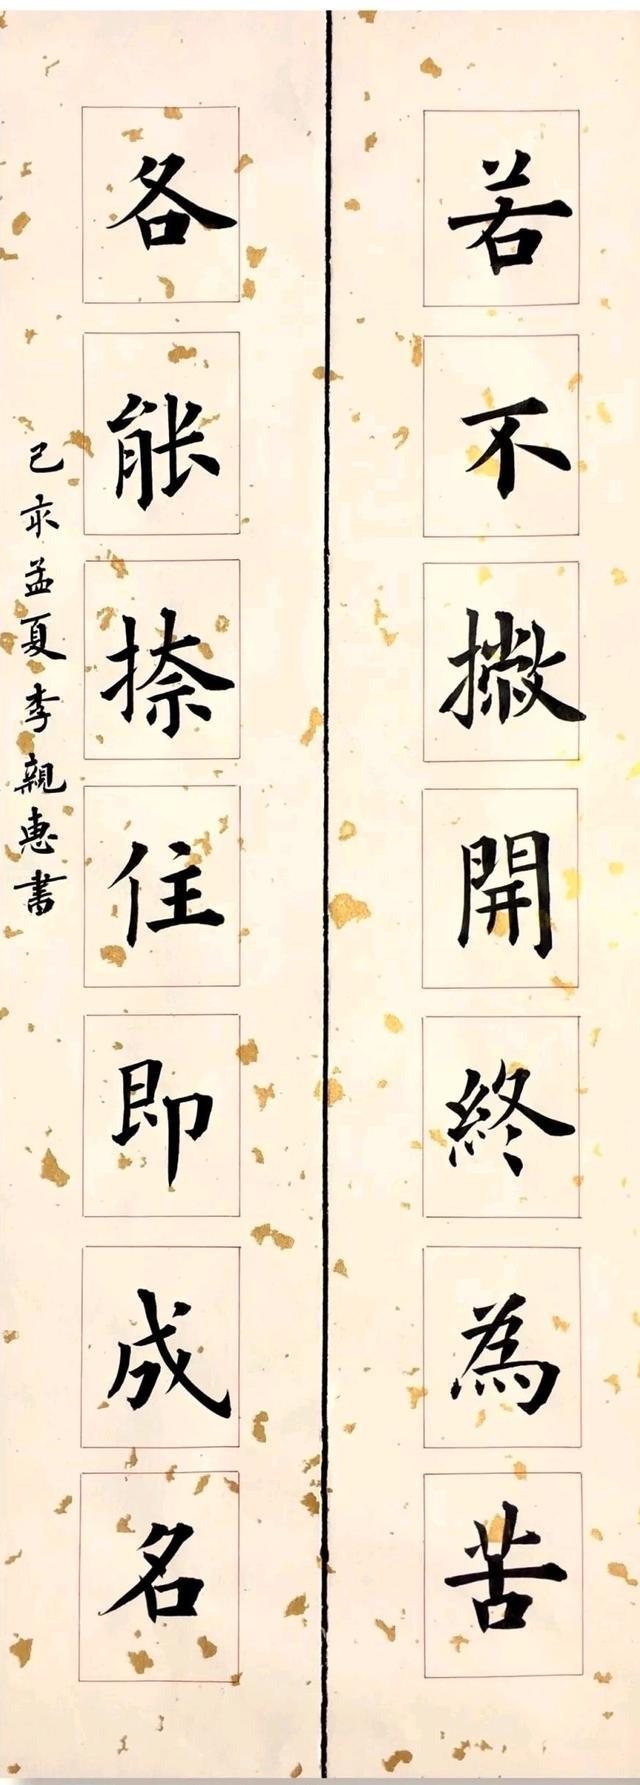 若不撒開終為苦
各能捺住即成名
己亥孟夏李親惠書